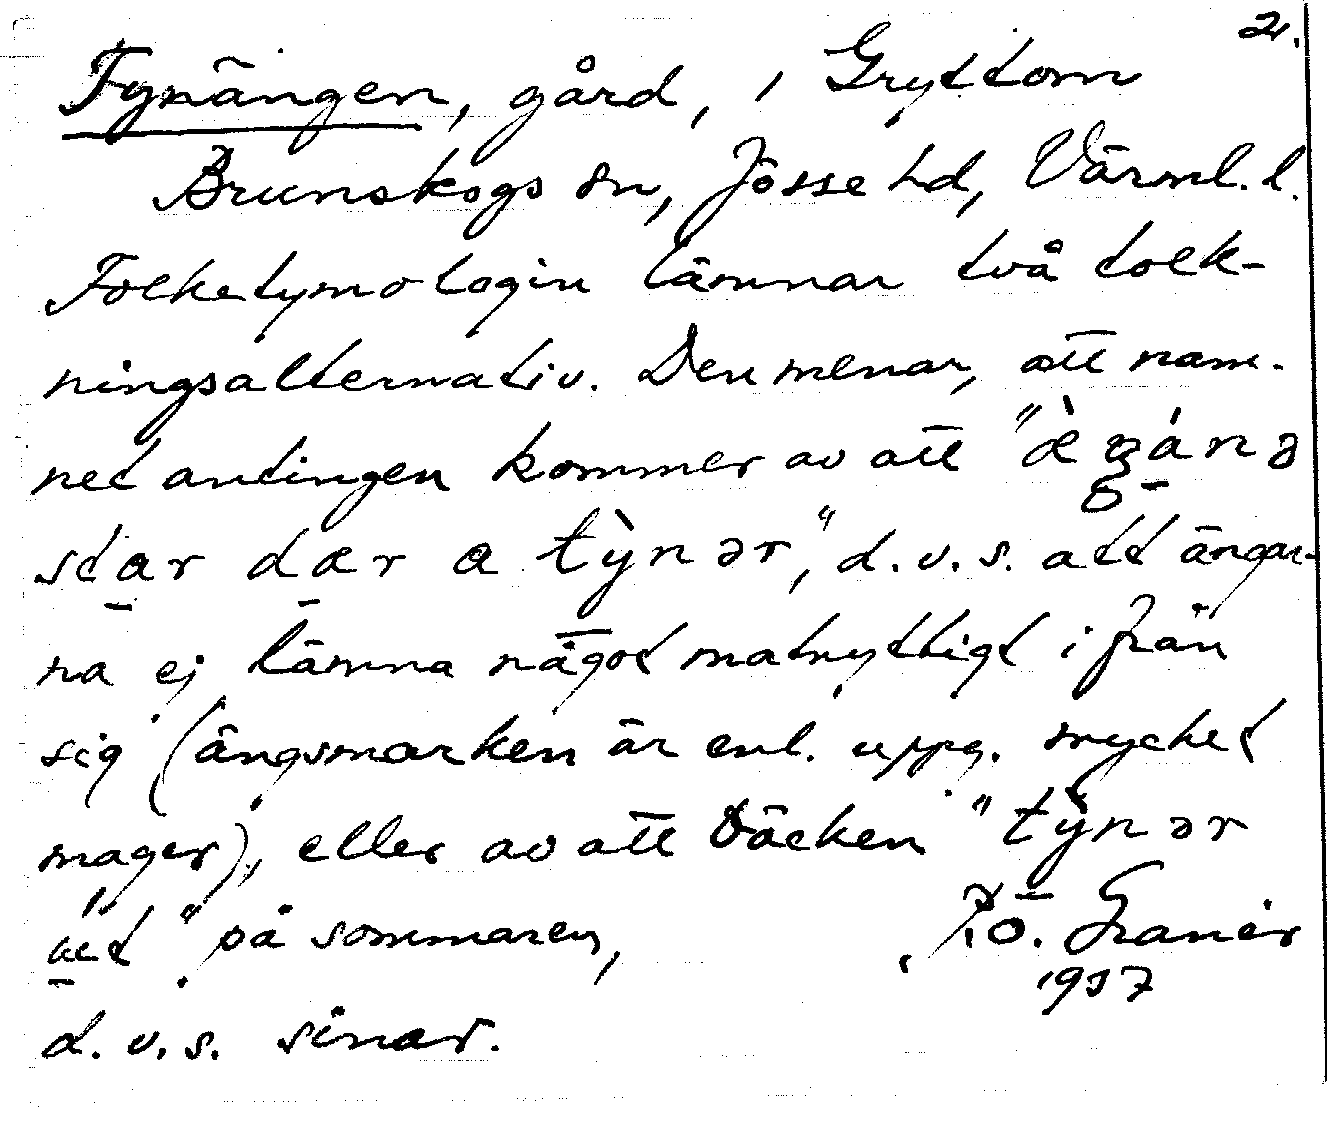 2.
Tynängen, gård, i Gryttom
Brunskogs sn, Jösse hd, Värml. l.
Folketymologin lämnar två tolk-
ningsalternativ. Den menar, att nam-
net antingen kommer av att "
star dær a tỳnər", d.v.s. att ängar-
na ej lämna något matnyttigt ifrån
sig (ängsmarken är enl. uppg. mycket
mager), eller av att bäcken "tỳnər
" på sommaren,
R.Ö. Granér
1937
d.v.s. sinar.